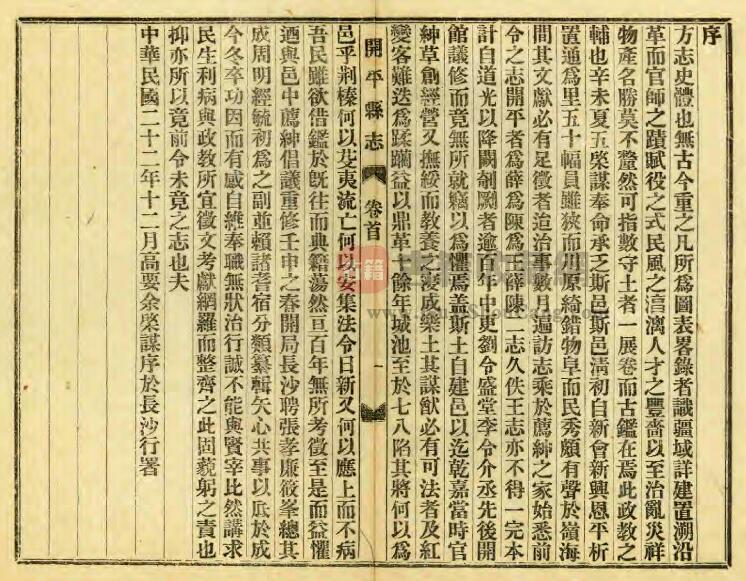 序
方志史體也無古今重之凡所爲圖表畧錄者識疆域詳建置溯沿
革而官師之蹟賦役之式民風之湻漓人才之豐嗇以至治亂災祥
物產名勝莫不釐然可指數守土者一展卷而古鑑在焉此政教之
輔也辛未夏五棨謀奉命承乏斯邑斯邑淸初自新會新興恩平析
置通爲里五十幅員雖狹而川原綺錯物阜而民秀頗有聲於嶺海
間其文獻必有足徵者迨治事數月遍訪志乘於薦紳之家始悉前
令之志開平者爲薛爲陳爲王薛陳二志久佚王志亦不得一完本
計自道光以降闕剞劂者逾百年中更劉令盛堂李令介丞先後開
館議修而竟無所就竊以爲懼焉盖斯土自建邑以迄乾嘉當時官
紳草創經營又撫綏而教養之浸成樂土其謀猷必有可法者及紅
變客難迭爲蹂躪益以鼎革十餘年城池至於七八陷其將何以爲
開平縣志
卷首
一
邑乎荆榛何以芟夷流亡何以安集法令日新又何以應上而不病
吾民雖欲借鑑於旣往而典籍蕩然亘百年無所考徵至是而益懼
迺與邑中薦紳倡議重修壬申之春開局長沙聘張孝廉筱峯總其
成周明經毓初爲之副並賴諸耆宿分類纂輯矢心共事以底於成
今冬卒功因而有感自維奉職無狀治行誠不能與賢宰比然講求
民生利病與政教所宜徵文考獻網羅而整齊之此固藐躬之責也
抑亦所以竟前令未竟之志也夫
中華民國二十二年十二月高要余棨謀序於長沙行署